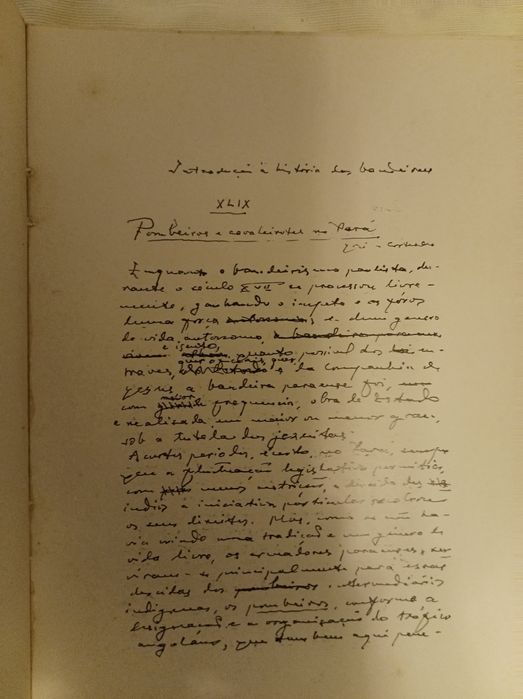 Introdução à história das bandeiras
XLIX
Pombeiros e cavaleirotes no Pará
Enquanto o bandeirismo paulista, du-
rante o século XVII se processou livre-
mente, ganhando o ímpeto e os fóros
duma força e dum genero
de vida autónomo,
e isento, quanto possivel dos en-
traves, quer oficiais, quer da Companhia de
Jesus, a bandeira paraense foi,
com maior frequencia, obra do Estado
e realizada em maior ou menor grau,
sob a tutela dos jesuitas.
A certos periodos, é certo, no Pará, sempre
que a legislativa permitia,
com menos restrições, a descida dos
indios à iniciativa particular
os seus limites. Mas, como se não ha-
via criado uma tradição e um género de
vida livre, os armadores paraenses, ser-
viram-se principalmente para essas
descidas dos intermediários
indigenas, os pombeiros, conforme a
designação e a organização do tráfico
angolano, que tambem aqui pene-